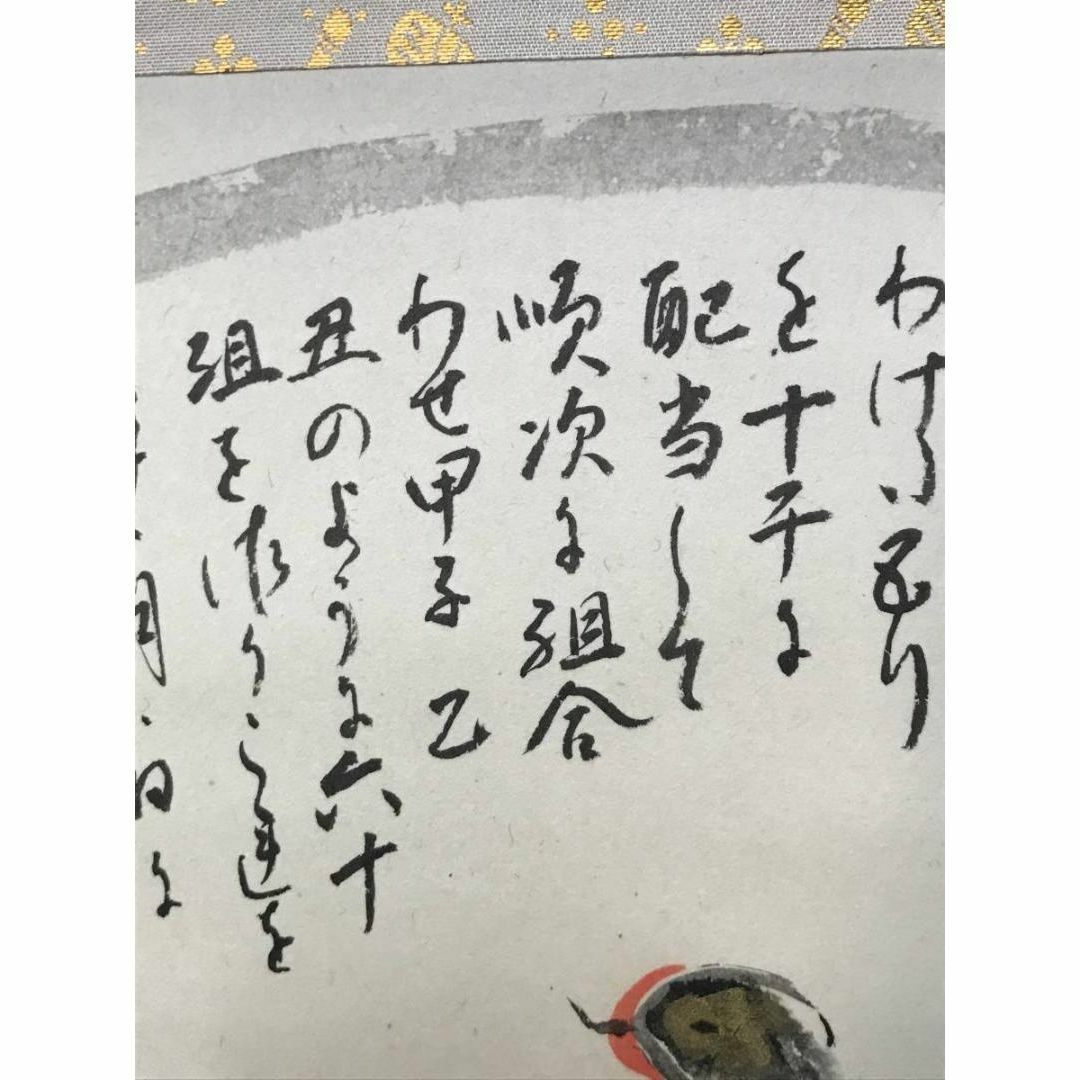 わける
を十干に
配当して
順次に組合
わせ甲子乙
丑のように六十
組を作りこれを
月日に